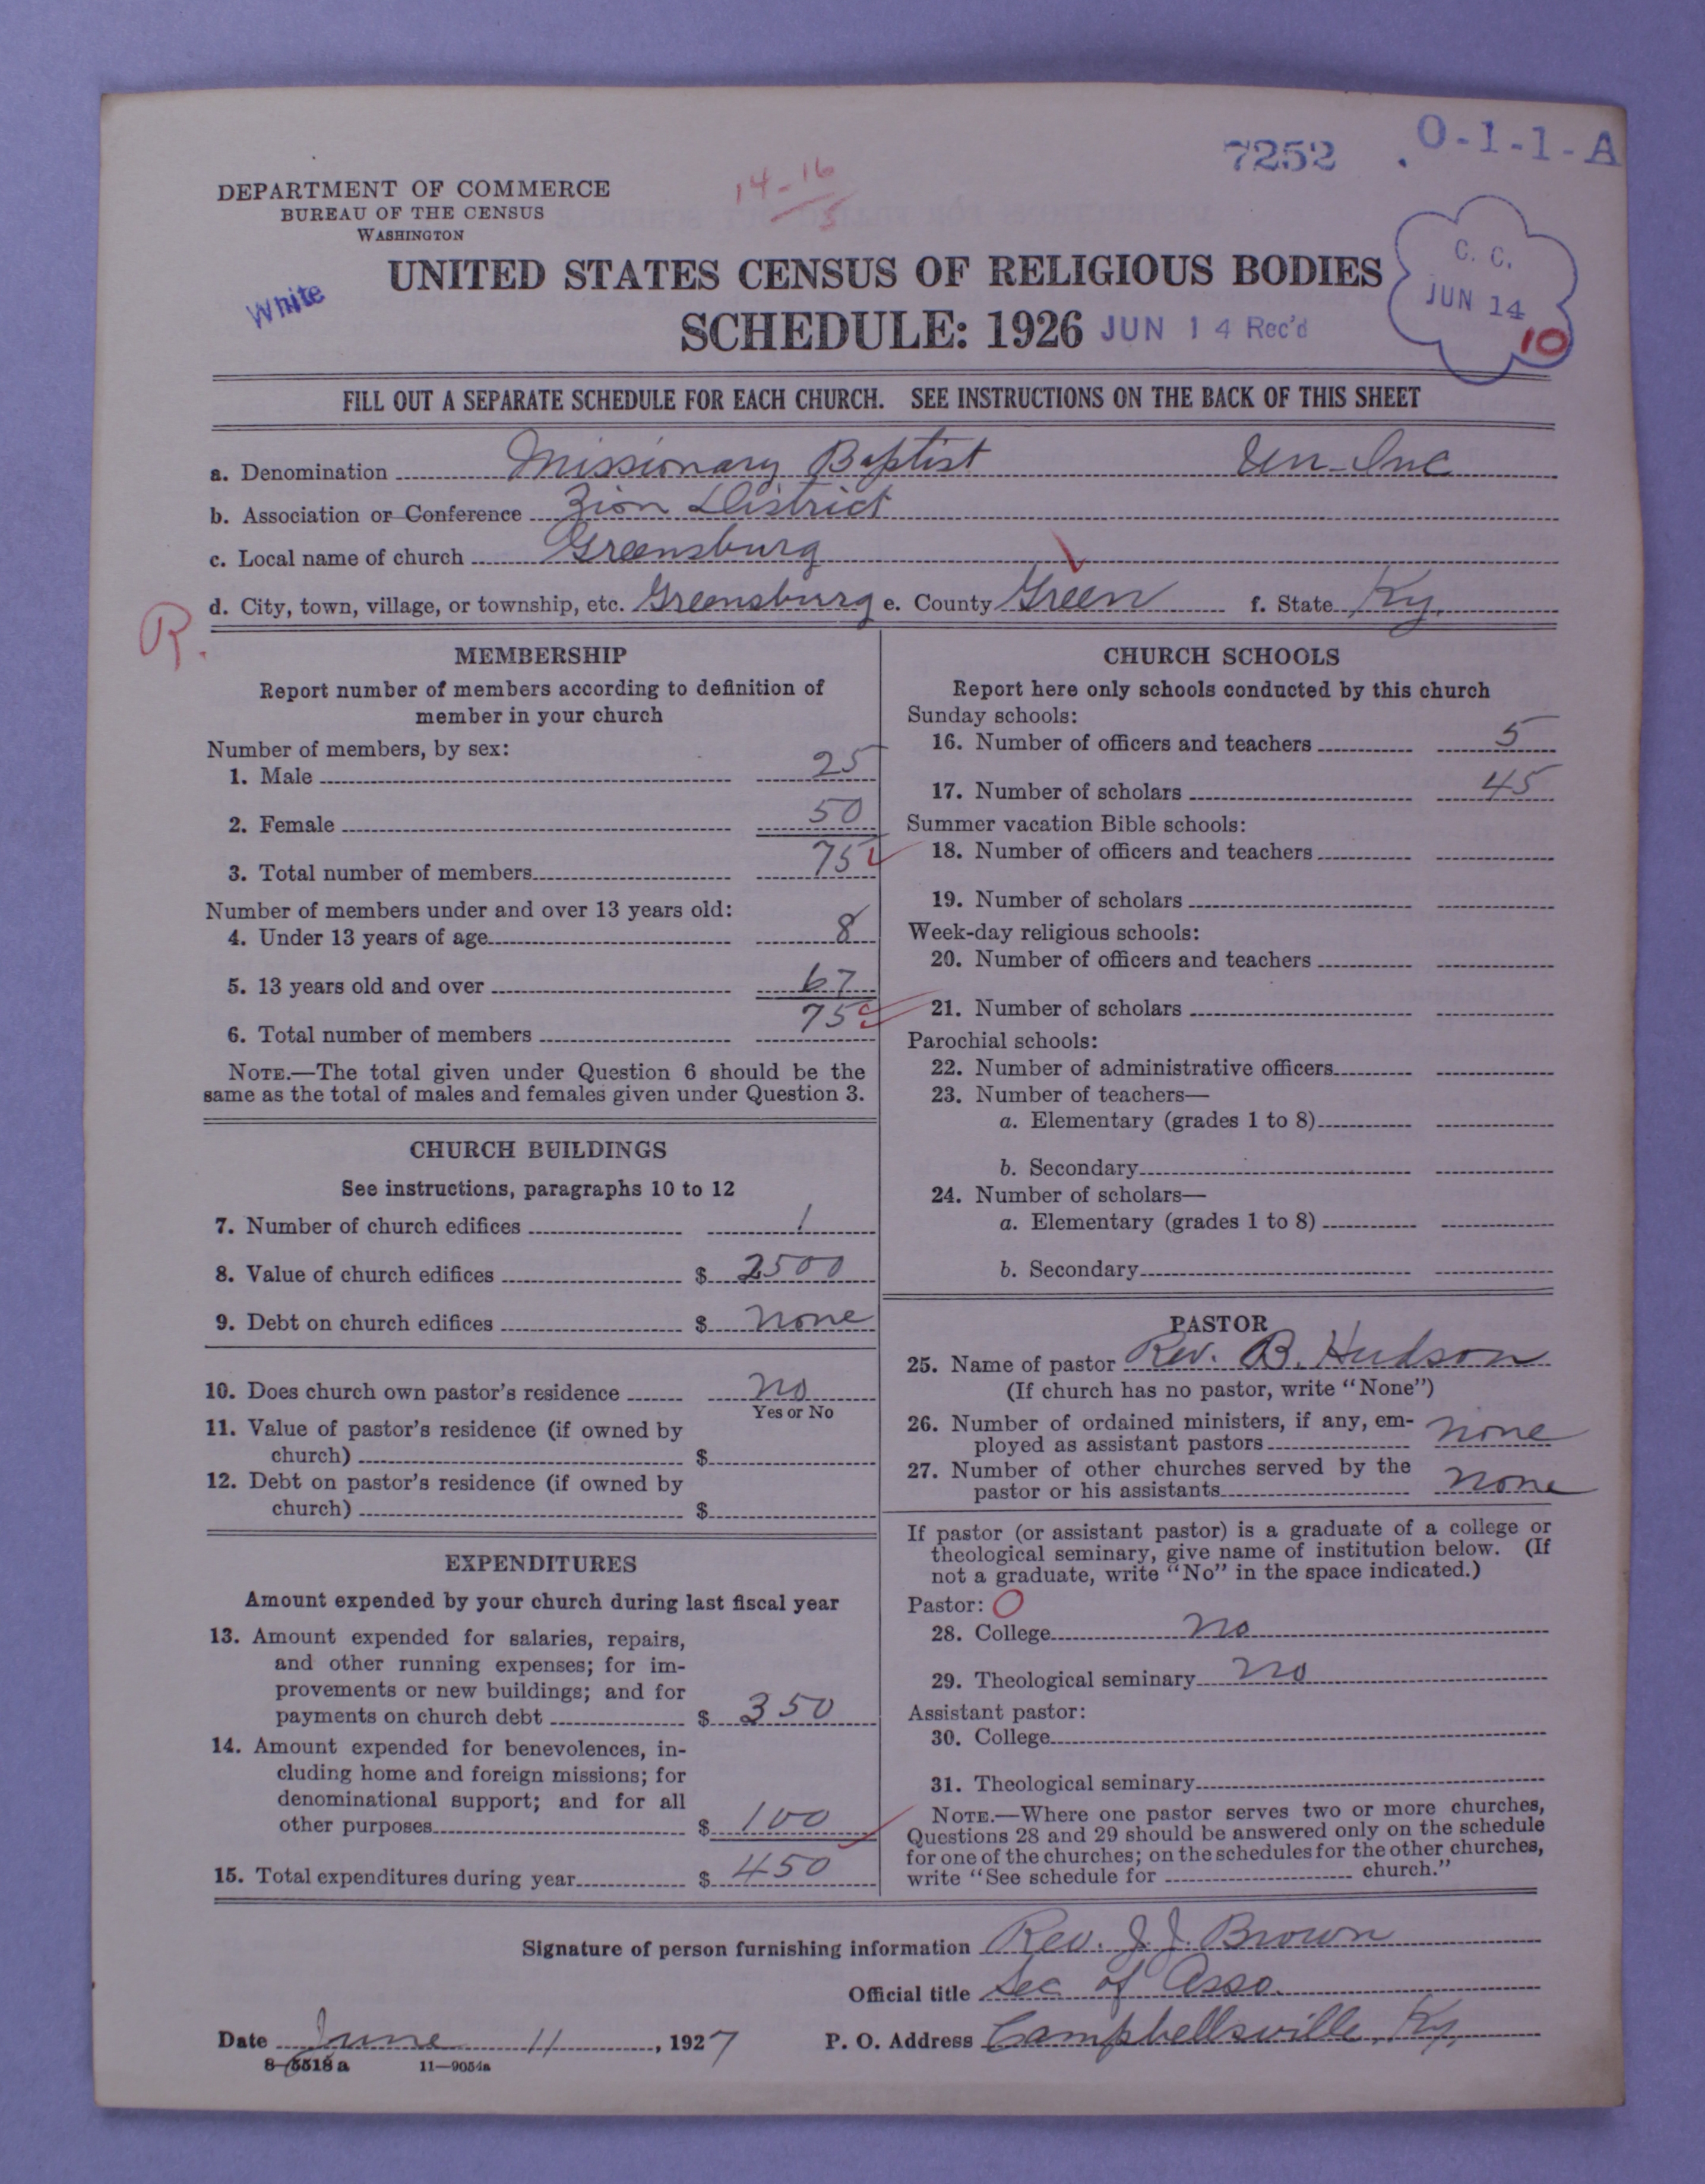 7252 . O-1-1-A
14-16
5
DEPARTMENT OF COMMERCE
BUREAU OF THE CENSUS
WASHINGTON
C. C.
JUN 14
10
White
UNITED STATES CENSUS OF RELIGIOUS BODIES
SCHEDULE: 1926 JUN 14 Rec'd
FILL OUT A SEPARATE SCHEDULE FOR EACH CHURCH. SEE INSTRUCTIONS ON THE BACK OF THIS SHEET
a. Denomination Missionary Baptist Un-Inc
b. Association or Conference Zion District
c. Local name of church Greensburg
d. City, town, village, or township, etc. Greensburg e. County Green f. State Ky.
R.
MEMBERSHIP
Report number of members according to definition of
member in your church
Number of members, by sex:
1. Male 25
2. Female 50
3. Total number of members 75
Number of members under and over 13 years old:
4. Under 13 years of age 8
5. 13 years old and over 67
6. Total number of members 75
NOTE.—The total given under Question 6 should be the
same as the total of males and females given under Question 3.
CHURCH BUILDINGS
See instructions, paragraphs 10 to 12
7. Number of church edifices 1
8. Value of church edifices $ 2500
9. Debt on church edifices $ none
10. Does church own pastor's residence no
Yes or No
11. Value of pastor's residence (if owned by
church) $
12. Debt on pastor's residence (if owned by
church) $
EXPENDITURES
Amount expended by your church during last fiscal year
13. Amount expended for salaries, repairs,
and other running expenses; for im-
provements or new buildings; and for
payments on church debt $ 350
14. Amount expended for benevolences, in-
cluding home and foreign missions; for
denominational support; and for all
other purposes $ 100
15. Total expenditures during year $ 450
CHURCH SCHOOLS
Report here only schools conducted by this church
Sunday schools:
16. Number of officers and teachers 5
17. Number of scholars 45
Summer vacation Bible schools:
18. Number of officers and teachers
19. Number of scholars
Week-day religious schools:
20. Number of officers and teachers
21. Number of scholars
Parochial schools:
22. Number of administrative officers
23. Number of teachers—
a. Elementary (grades 1 to 8)
b. Secondary
24. Number of scholars—
a. Elementary (grades 1 to 8)
b. Secondary
PASTOR
25. Name of pastor Rev. B. Hudson
(If church has no pastor, write "None")
26. Number of ordained ministers, if any, em-
ployed as assistant pastors none
27. Number of other churches served by the
pastor or his assistants none
If pastor (or assistant pastor) is a graduate of a college or
theological seminary, give name of institution below. (If
not a graduate, write "No" in the space indicated.)
Pastor: O
28. College no
29. Theological seminary no
Assistant pastor:
30. College
31. Theological seminary
NOTE.—Where one pastor serves two or more churches,
Questions 28 and 29 should be answered only on the schedule
for one of the churches; on the schedules for the other churches,
write "See schedule for church."
Signature of person furnishing information Rev. J. J. Brown
Official title Sec of Asso.
Date June 11, 1927 P. O. Address Campbellsville, Ky.
8-5518a 11—9054a